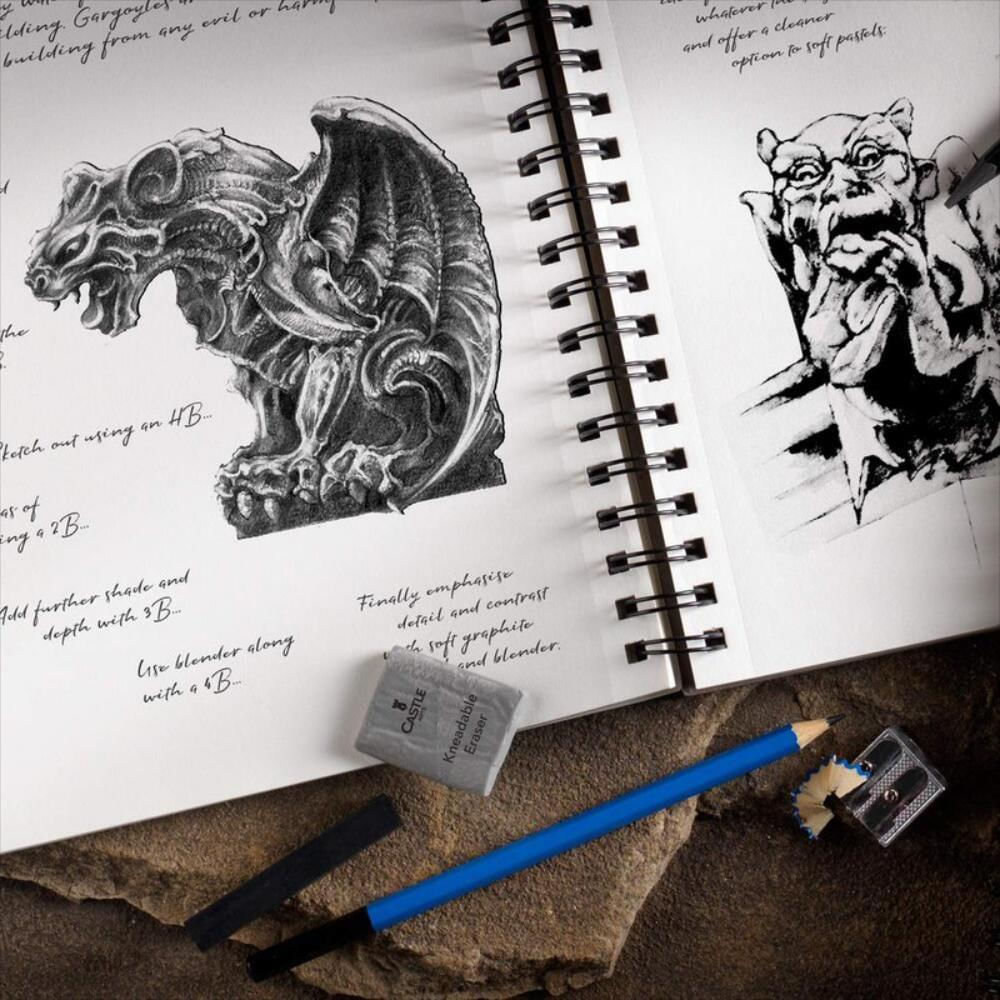 building. Gargoyles
building from any evil or harm
the
Sketch out using an HB...
as of
using a 2B...
Add further shade and
depth with 3B...
Use blender along
with a 4B...
Finally emphasise
detail and contrast
with soft graphite
and blender.
whatever the
and offer a cleaner
option to soft pastels.
CASTLE
ARTS
Kneadable
Eraser